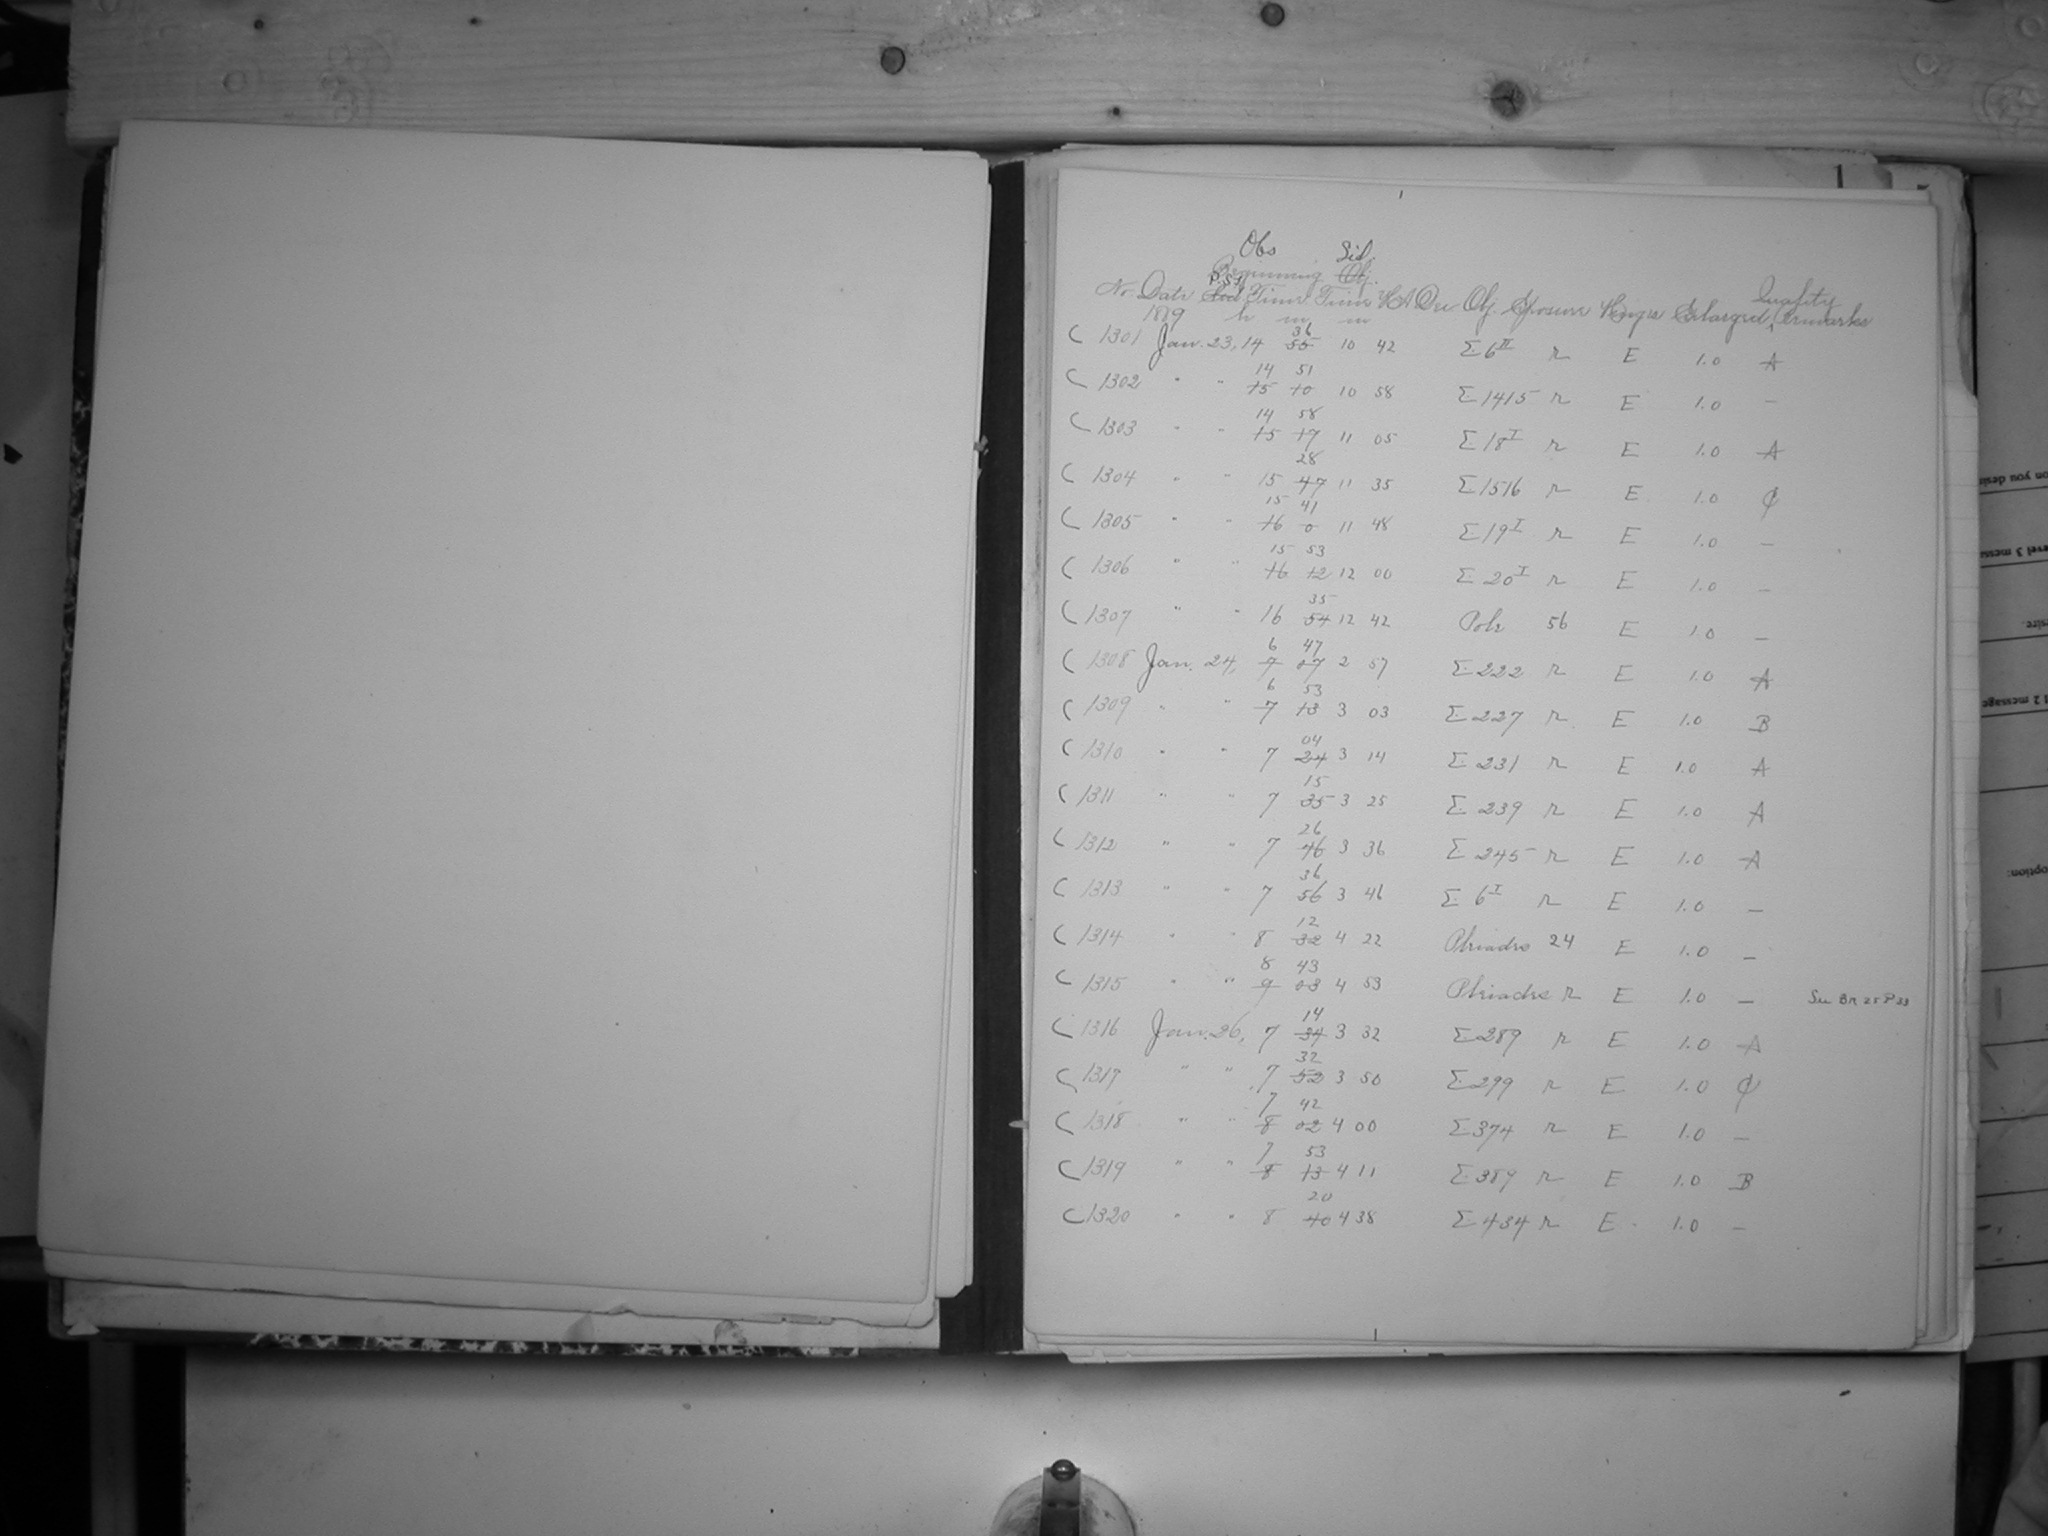 Obs Sid.
Beginning Obj.
P.S.T. Quality
No. Date Sid. Time Time HA Dec Obj. Exposure Enlarged Remarks
1889 h m m
36
C 1301 Jan. 23, 14 55 10 42 Σ6II r E 1.0 A
14 51
C 1302 " " 15 10 10 58 Σ1415 r E 1.0 —
14 58
C 1303 " " 15 17 11 05 Σ18I r E 1.0 A
28
C 1304 " " 15 47 11 35 Σ1516 r E 1.0 C
15 41
C 1305 " " 16 0 11 48 Σ19I r E 1.0 —
15 53
C 1306 " " 16 12 12 00 Σ20I r E 1.0 —
35
C 1307 " " 16 54 12 42 Pole 56 E 1.0 —
6 47
C 1308 Jan. 24, 7 07 2 57 Σ222 r E 1.0 A
6 53
C 1309 " " 7 13 3 03 Σ227 r E 1.0 B
04
C 1310 " " 7 24 3 14 Σ231 r E 1.0 A
15
C 1311 " " 7 35 3 25 Σ239 r E 1.0 A
26
C 1312 " " 7 46 3 36 Σ245 r E 1.0 A
36
C 1313 " " 7 56 3 46 Σ6I r E 1.0 —
12
C 1314 " " 8 32 4 22 Pleiades 24 E 1.0 —
8 43
C 1315 " " 9 03 4 53 Pleiades r E 1.0 — See BR 25 P 33
14
C 1316 Jan. 26, 7 34 3 32 Σ289 r E 1.0 A
32
C 1317 " " 7 52 3 50 Σ299 r E 1.0 C
7 42
C 1318 " " 8 02 4 00 Σ374 r E 1.0 —
7 53
C 1319 " " 8 13 4 11 Σ389 r E 1.0 B
20
C 1320 " " 8 40 4 38 Σ434 r E 1.0 —
on you desire
evel 3 messa
esire.
l 2 message
option: